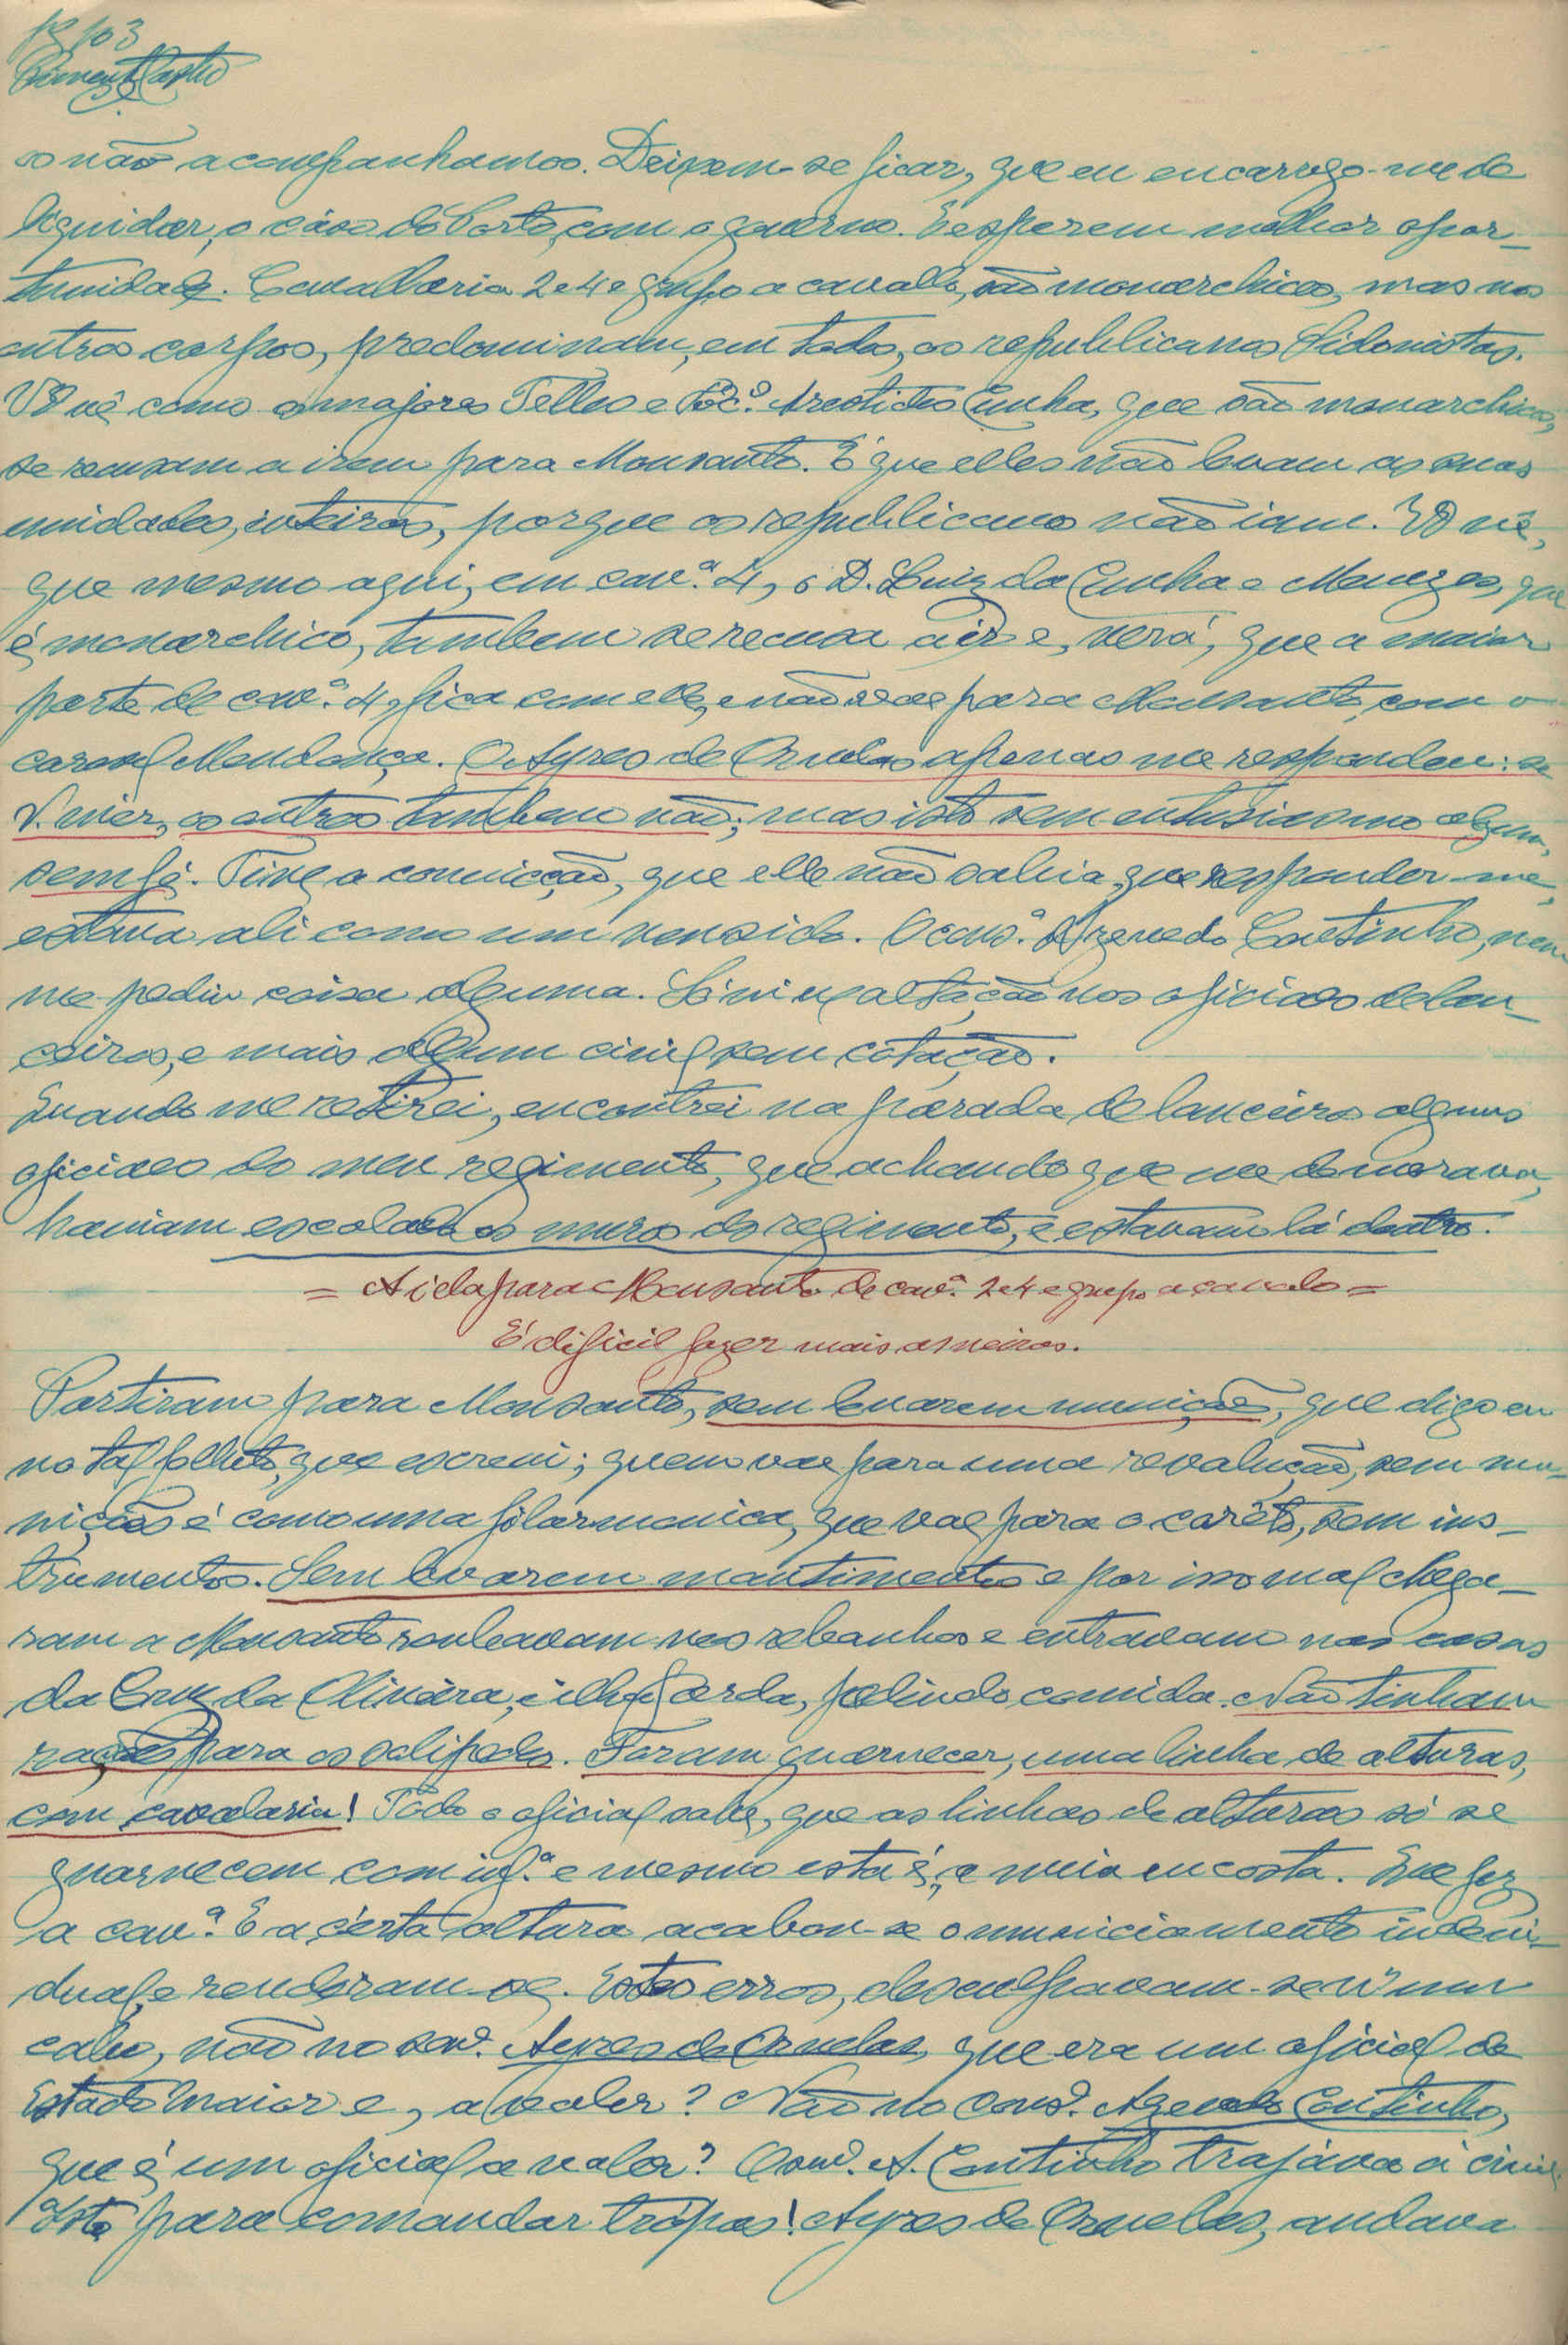 103
os não acompanhamos. Deixem-se ficar, que eu encarrego-me de
liquidar, o cáso do Porto, com o governo. E esperem melhor opor-
tunidade. Cavallaria 2 e 4 e grupo a cavallo, são monarchicos, mas nos
outros corpos, predominam, em todos, os republicanos Sidonistas.
V. vê como os majores Telles e Aristides Cunha, que são monarchicos,
se recusam a irem para Monsanto. E que elles não levam as suas
unidades, inteiras, porque os republicanos não iam. V. vê,
que mesmo aqui, em cavª. 4, o D. Luiz da Cunha e Menezes, que
é monarchico, tambem se recusa a ir e, verá, que a maior
parte de cavª. 4, fica com elle, e não vae para Monsanto, com o
coronel Mendonça. O Ayres de Ornelas apenas me respondeu: se
V. não ir, os outros tambem não; mas isto sem entusiasmo algum,
sem fé. Tive a convicção, que elle não sabia que responder-me,
estava ali como um vencido. O consº. Azevedo Coutinho, nem
me pediu coisa alguma. Só vi exaltação nos oficiaes de lan-
ceiros, e mais algum civil sem cotação.
Quando me retirei, encontrei na parada de lanceiros alguns
oficiaes do meu regimento, que achando que me demorava,
haviam escalado os muros do regimento, e estavam lá dentro.
= A ida para Monsanto de cavª. 2 e 4 e grupo a cavalo =
É dificil fazer mais asneiras.
Partiram para Monsanto, sem levarem munições, que digo eu
no tal folheto, que escrevi; quem vae para uma revolução, sem mu-
nições é como uma filarmonica, que vae para o corêto, sem ins-
trumentos. Sem levarem mantimentos e por isso mal chega-
ram a Monsanto roubavam nos rebanhos e entravam nas casas
da Cruz da Oliveira, pedindo comida. Não tinham
rações para os solipedes. Foram guarnecer, uma linha de alturas,
com cavalaria! Todo o oficial sabe, que as linhas de alturas só se
guarnecem com infª. e mesmo esta é, a meia encosta. Que fez
a cavª. E a cérta altura acabou-se o municiamento indevi-
dual, e renderam-se. Estes erros, desculpavam-se n'um
cabo, não no consº. Ayres de Ornelas, que era um oficial do
Estado Maior e, a valer? Não no Consº. Azevedo Coutinho,
que é um oficial a valer? O consº. A. Coutinho trajáva á civil.
Isto para comandar trópas! Ayres de Ornelas, andava